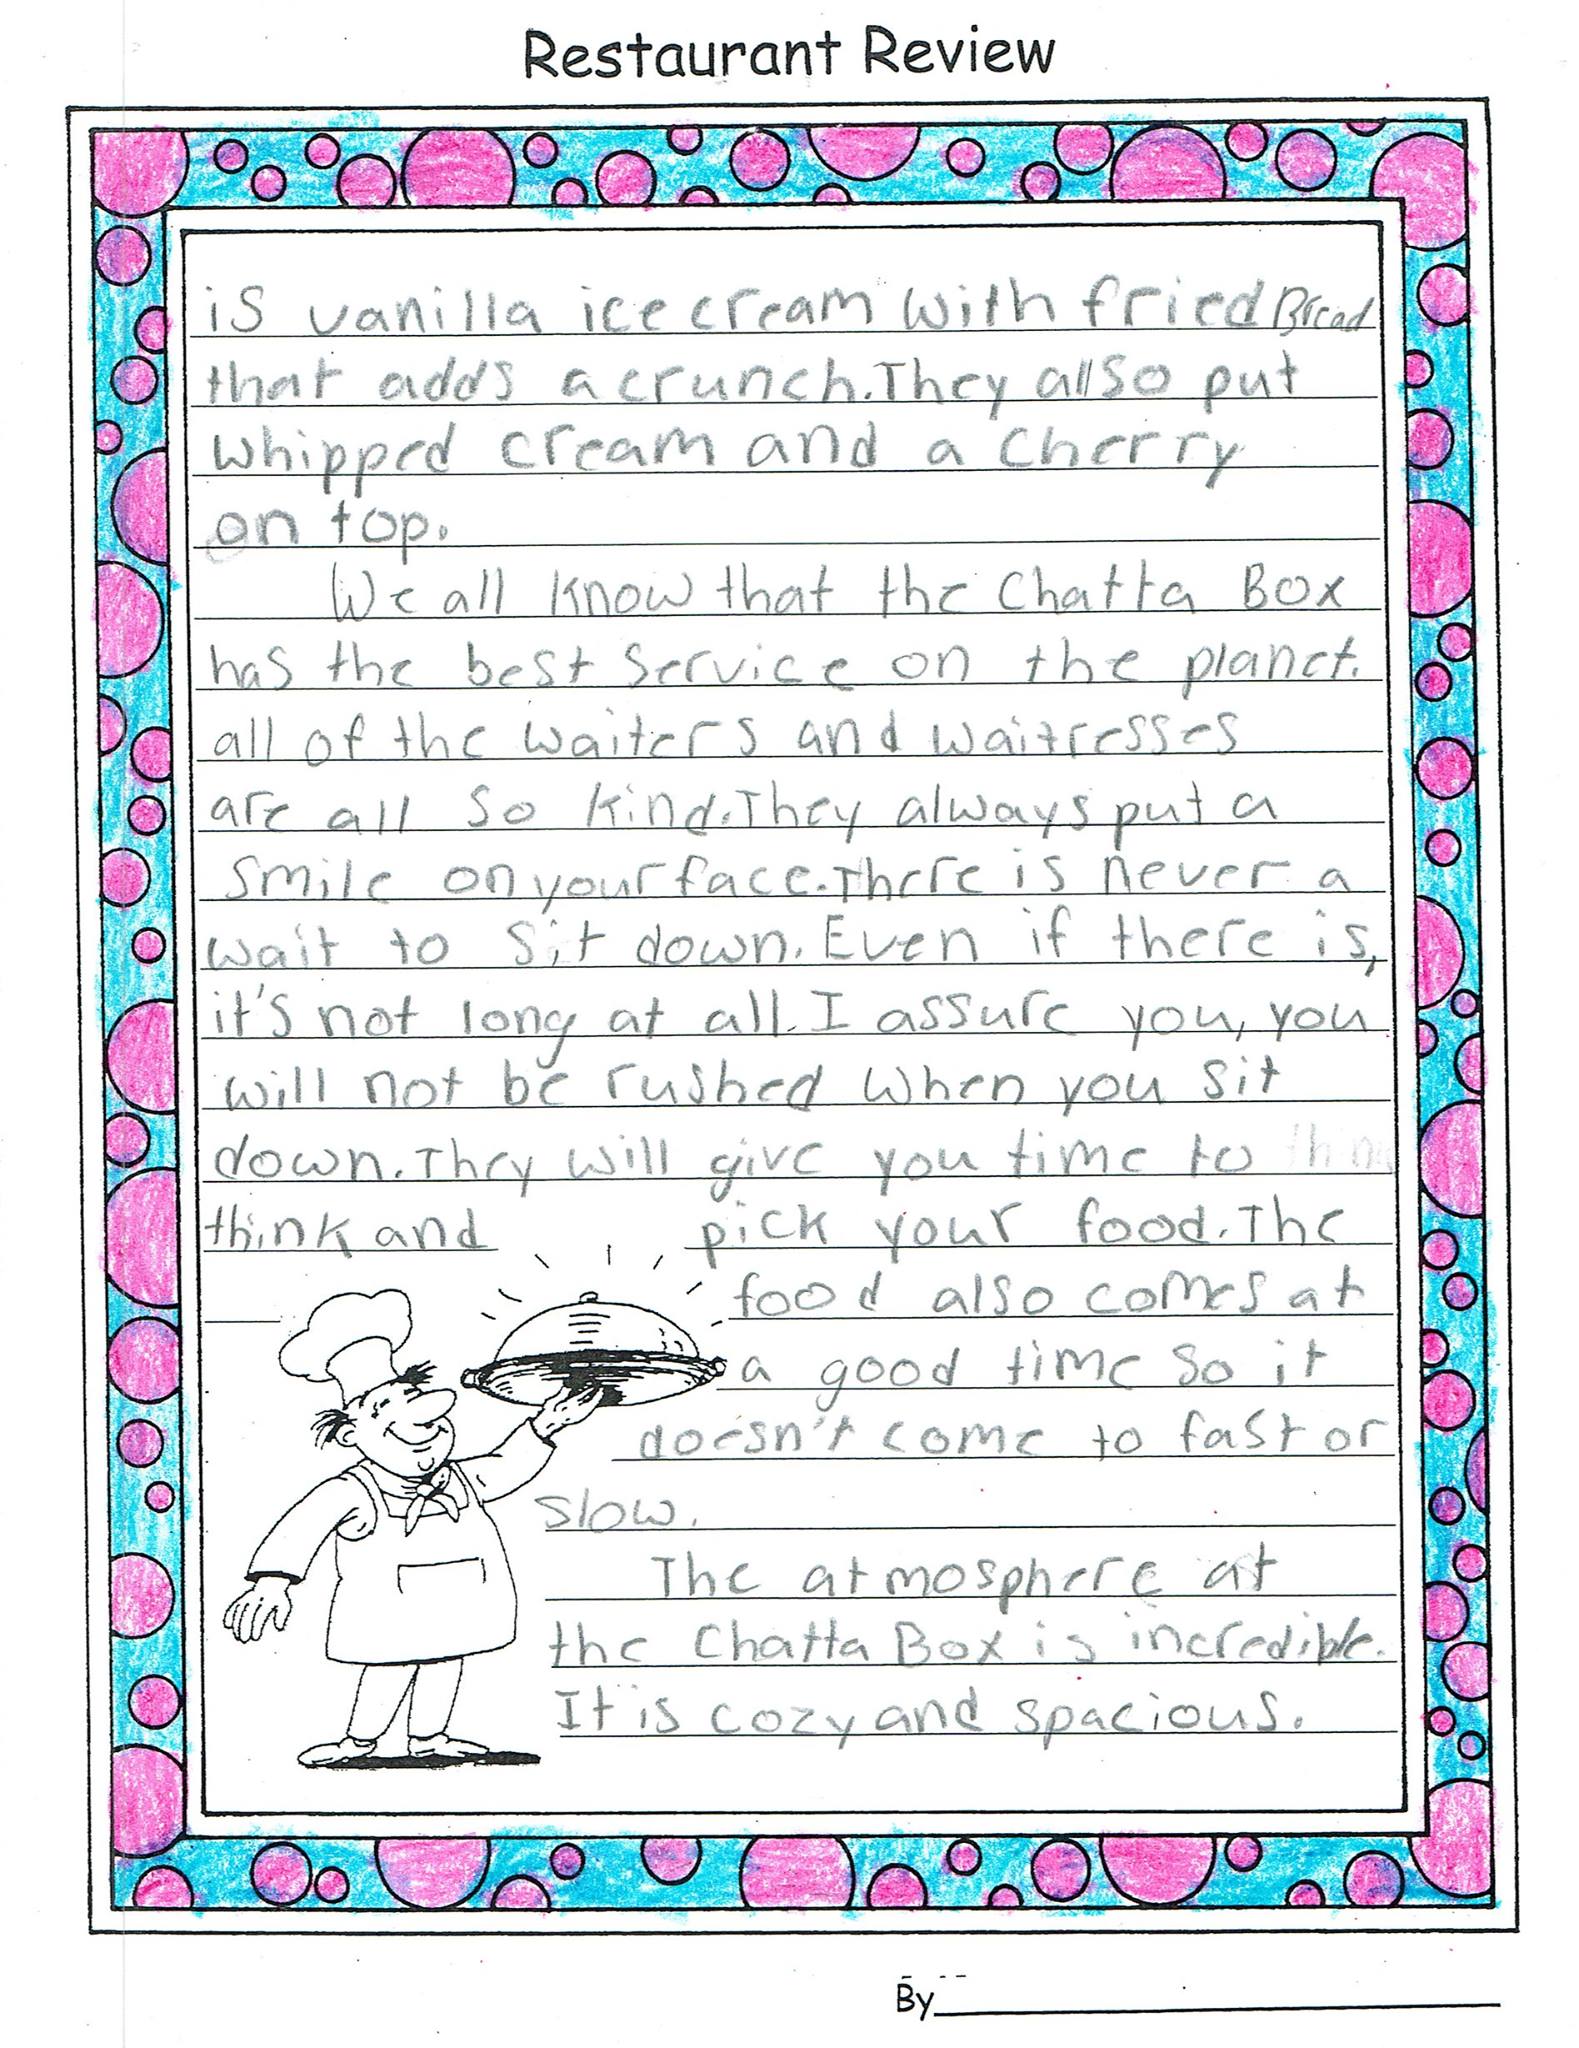 Restaurant Review
is vanilla ice cream with fried Bread
that adds a crunch. They also put
whipped cream and a cherry
on top.
We all know that the Chatta Box
has the best service on the planet.
all of the waiters and waitresses
are all so kind. They always put a
smile on your face. There is never a
wait to sit down. Even if there is,
it's not long at all. I assure you, you
will not be rushed when you sit
down. They will give you time to
think and pick your food. The
food also comes at
a good time so it
doesn't come to fast or
slow.
The atmosphere at
the Chatta Box is incredible.
It is cozy and spacious.
By